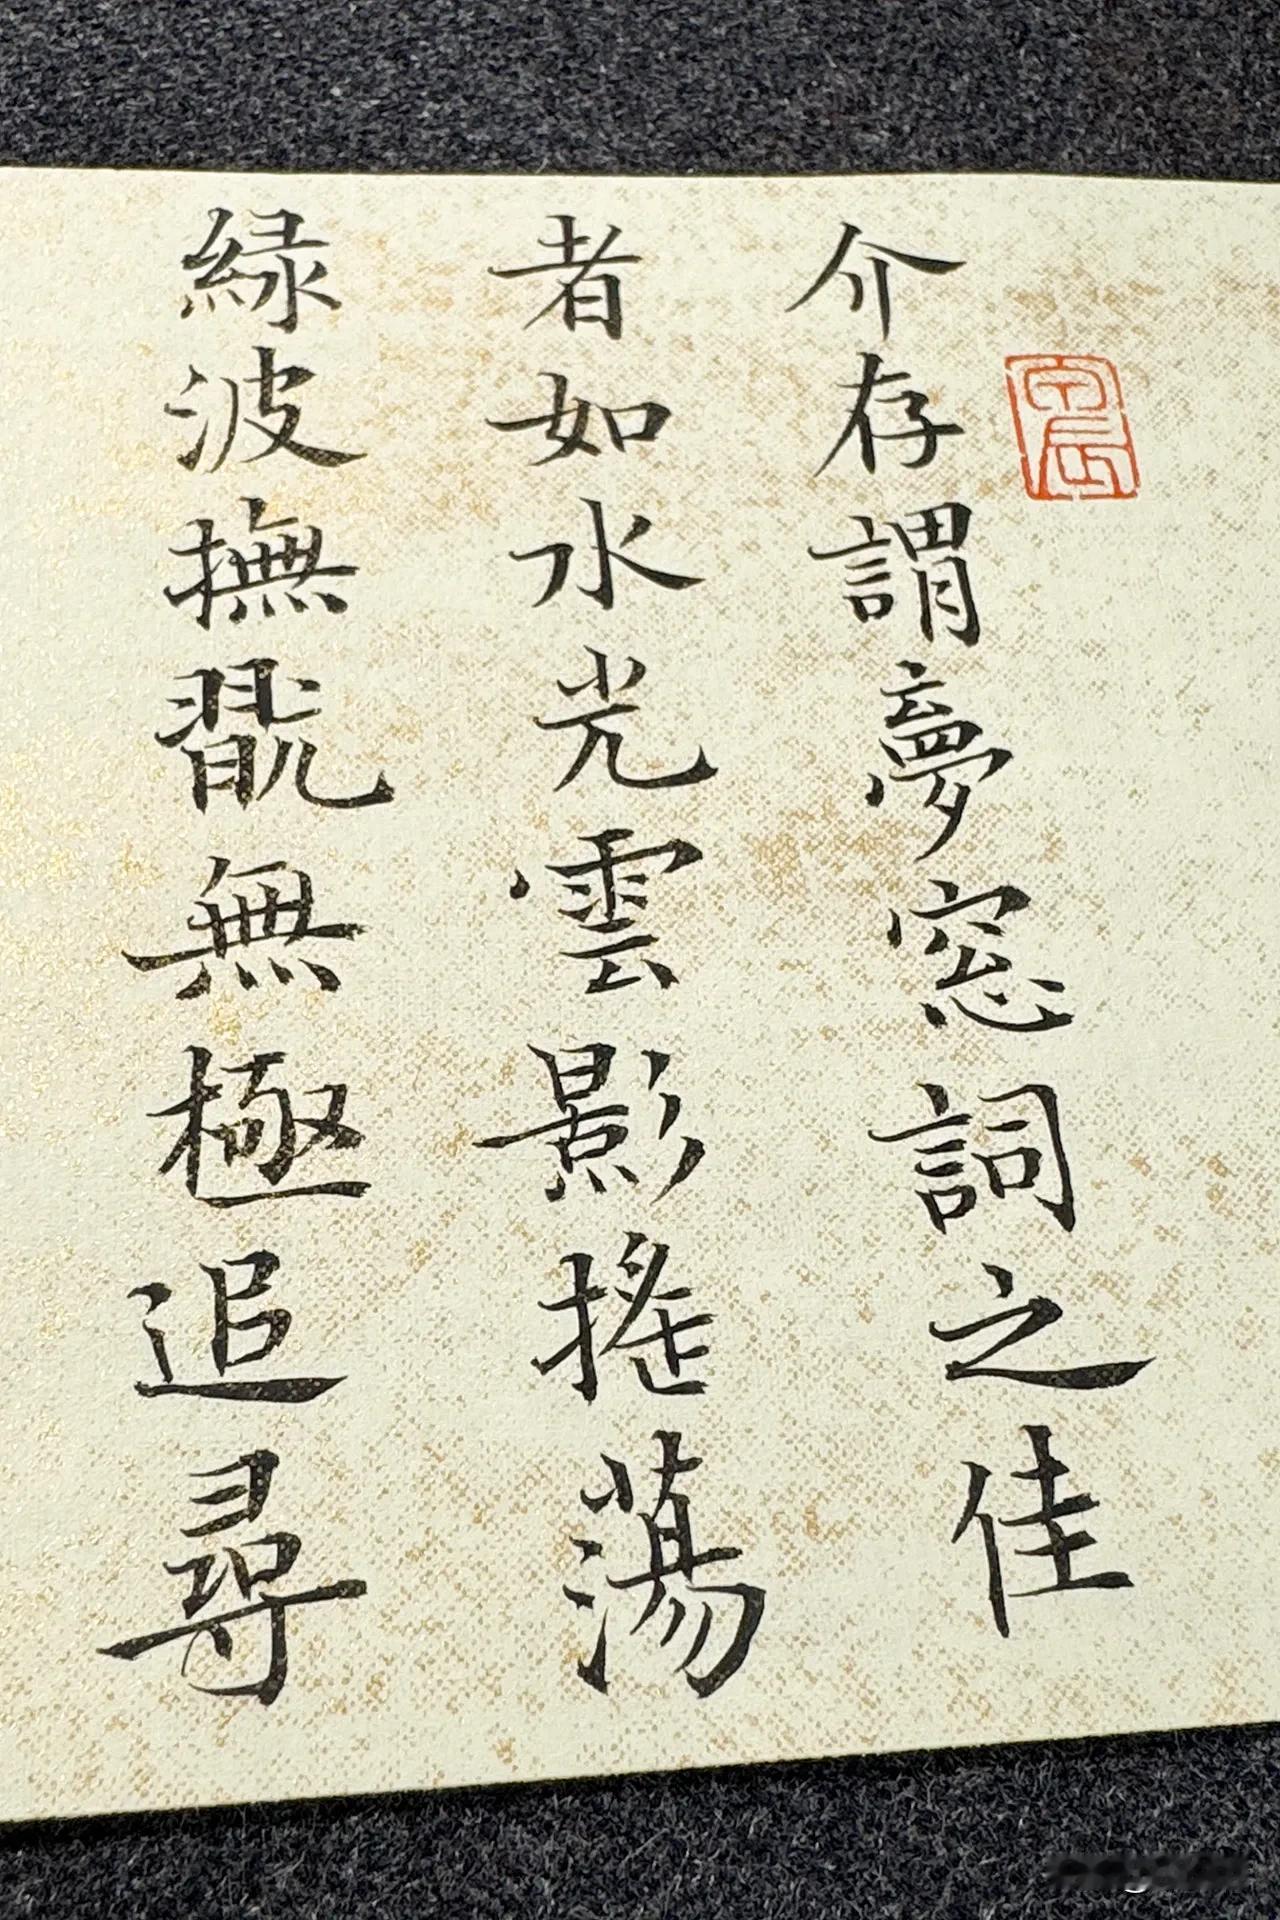 介存謂夢窓詞之佳
者如水光雲影搖蕩
緑波撫翫無極追尋